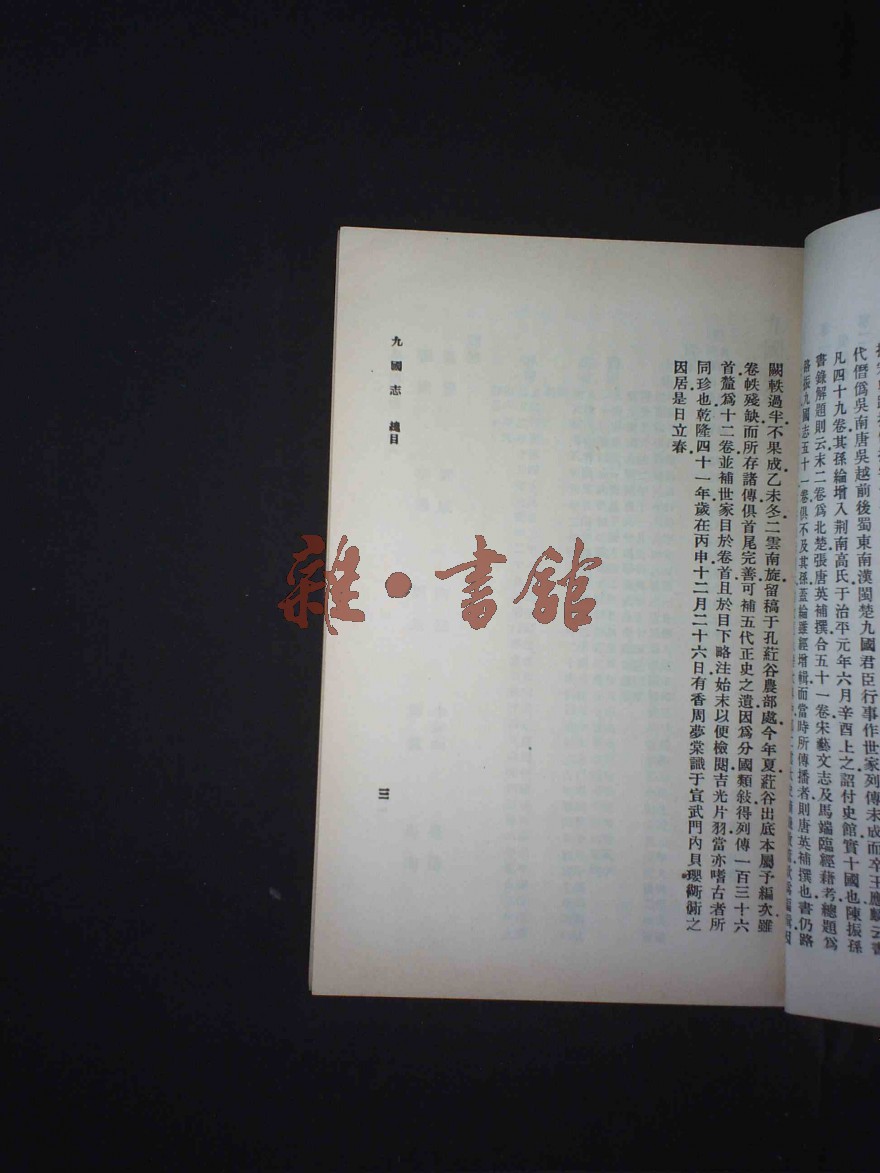 代僭僞吳南唐吳越前後蜀東南漢閩楚九國君臣行事作世家列傳未成而卒王應麟云書
凡四十九卷其孫綸增入荆南高氏于治平元年六月辛酉上之詔付史館實十國也陳振孫
書錄解題則云末二卷爲北楚張唐英補撰合五十一卷宋藝文志及馬端臨經籍考總題爲
路振九國志五十一卷俱不及其孫蓋綸雖經增輯而當時所傳播者則唐英補撰也書仍路
闕軼過半不果成乙未冬二雲南旋留稿于孔葒谷農部處今年夏葒谷出底本屬予編次雖
卷帙殘缺而所存諸傳俱首尾完善可補五代正史之遺因爲分國類敍得列傳一百三十六
首釐爲十二卷並補世家目於卷首且於目下略注始末以便檢閱吉光片羽當亦嗜古者所
同珍也乾隆四十一年歲在丙申十二月二十六日有香周夢棠識于宣武門內貝瓔衚衕之
因居是日立春
九國志 總目
三
雜·書館